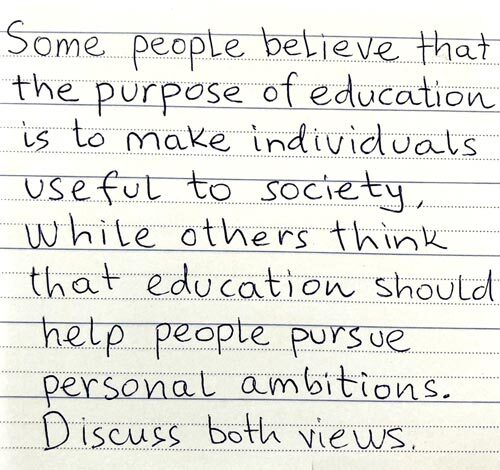 Some people believe that
the purpose of education
is to make individuals
useful to society,
While others think
that education should
help people pursue
personal ambitions.
Discuss both views.